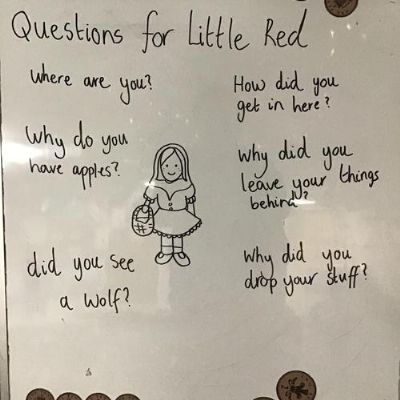 Questions for Little Red
Where are you?
Why do you
have apples?
did you see
a Wolf?
How did you
get in here?
Why did you
leave your things
behind?
Why did you
drop your stuff?